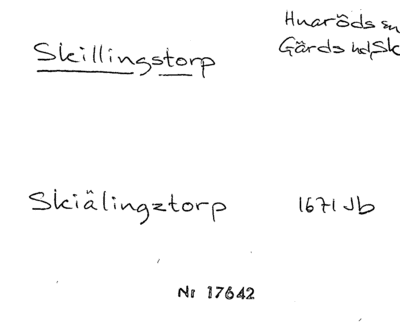 Huaröds sn
Skillingstorp Gärds hd, Sk
Skiälingztorp 1671 Jb
Nr 17642